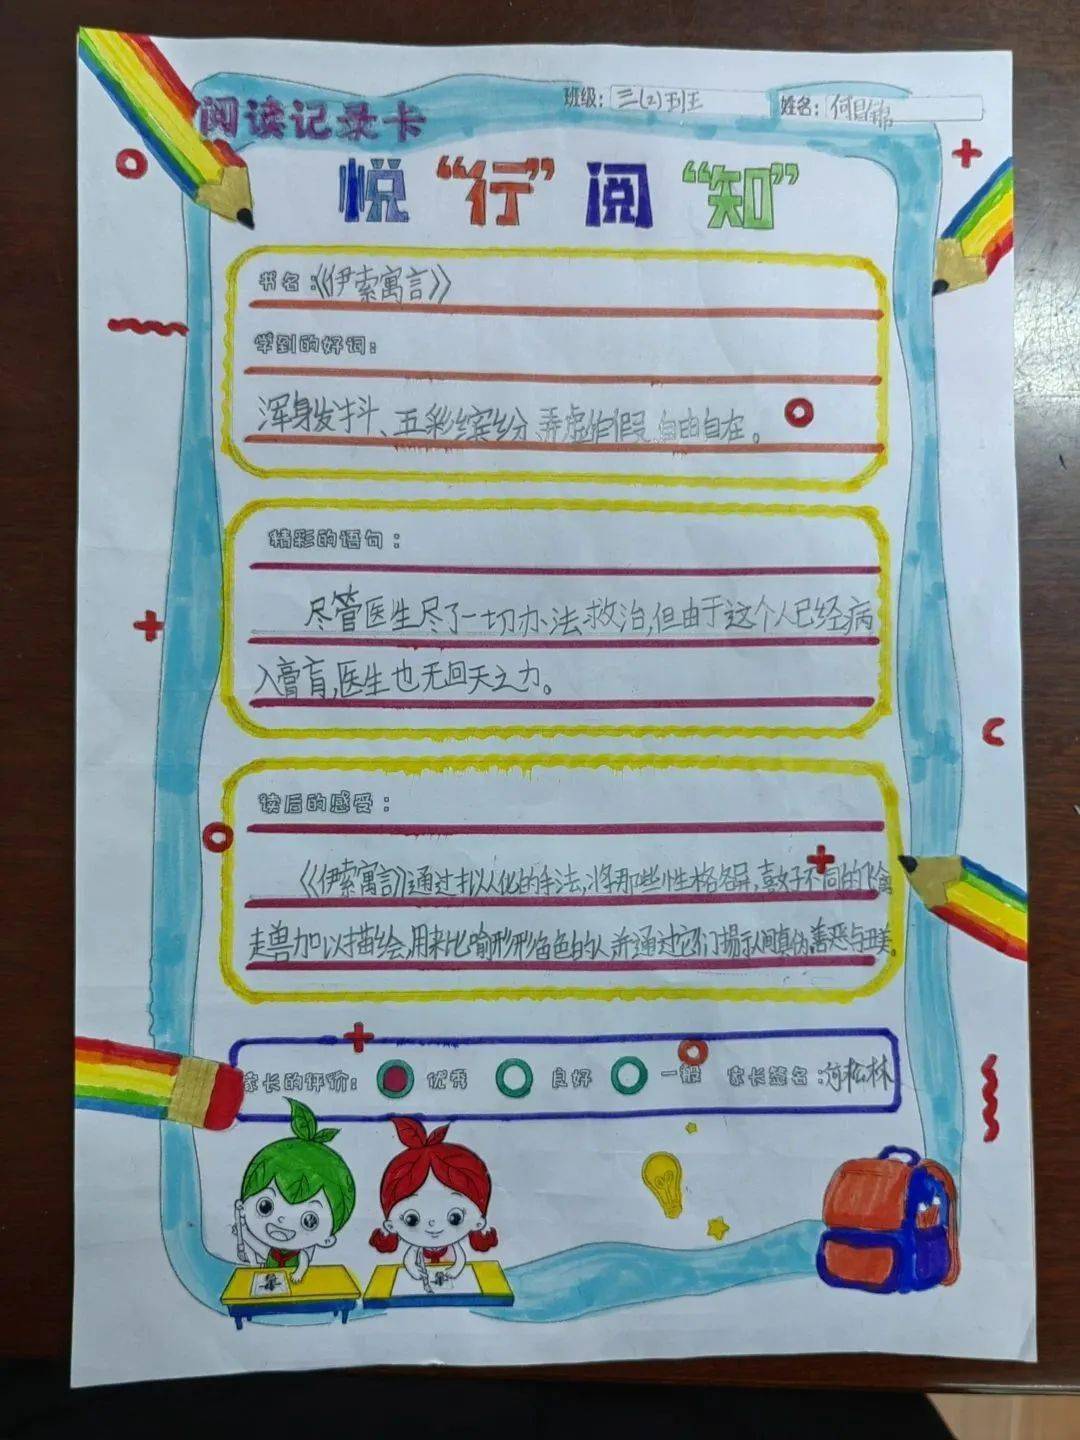 阅读记录卡
班级：三(2)班
姓名：何昌锦
悦“行”阅“知”
书名：《伊索寓言》
学到的好词：
浑身发抖、五彩缤纷、弄虚作假、自由自在。
精彩的语句：
尽管医生尽了一切办法救治,但由于这个人已经病
入膏肓,医生也无回天之力。
读后的感受：
《伊索寓言》通过拟人化的手法,将那些性格各异,喜好不同的飞禽
走兽加以描绘,用来比喻形形色色的人,并通过它们揭示人间真伪,善恶与丑美。
家长的评价： 优秀 良好 一般 家长签名：何松林